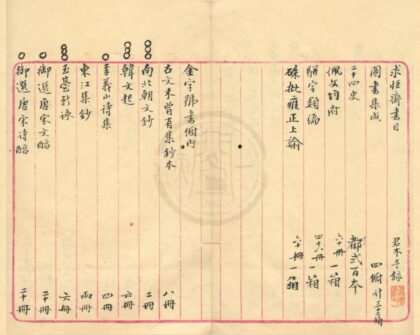 求恒齋書目 君木手錄
圖書集成 四櫥計三十二箱
二十四史 都貳百本
佩文韵府 六十冊一箱
駢字類編 四十八冊一箱
硃批雍正上諭 六十冊一箱
金字號書櫥內
古文未曾有集鈔本 八冊
南北朝文鈔 二冊
韓文起 六冊
李義山詩集 四冊
東江集鈔 兩冊
玉臺新詠 六冊
御選唐宋文醇 二十冊
御選唐宋詩醇 二十冊